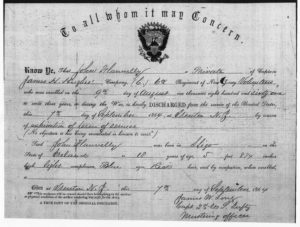 To all whom it may Concern.
Know Ye, That John Flannelly a Private of Captain
James H. Hughes Company, C, 6th Regiment of New Jersey Volunteers
who was enrolled on the 9th day of August one thousand eight hundred and sixty one
to serve three years, or during the War, is hereby DISCHARGED from the service of the United States,
this 7th day of September 1864, at Trenton N.J. by reason of
expiration of term of service
(No objection to his being reenlisted is known to exist.)
Said John Flannelly was born in Sligo in the
State of Ireland is years of age, 5 feet
high, Light complexion, Blue eyes, hair, and by occupation, when enrolled,
Given at Trenton N.J. this 7th day of September 1864
A TRUE COPY OF THE ORIGINAL DISCHARGE.
James W. Long
Capt 2d U.S. Infty
Mustering officer